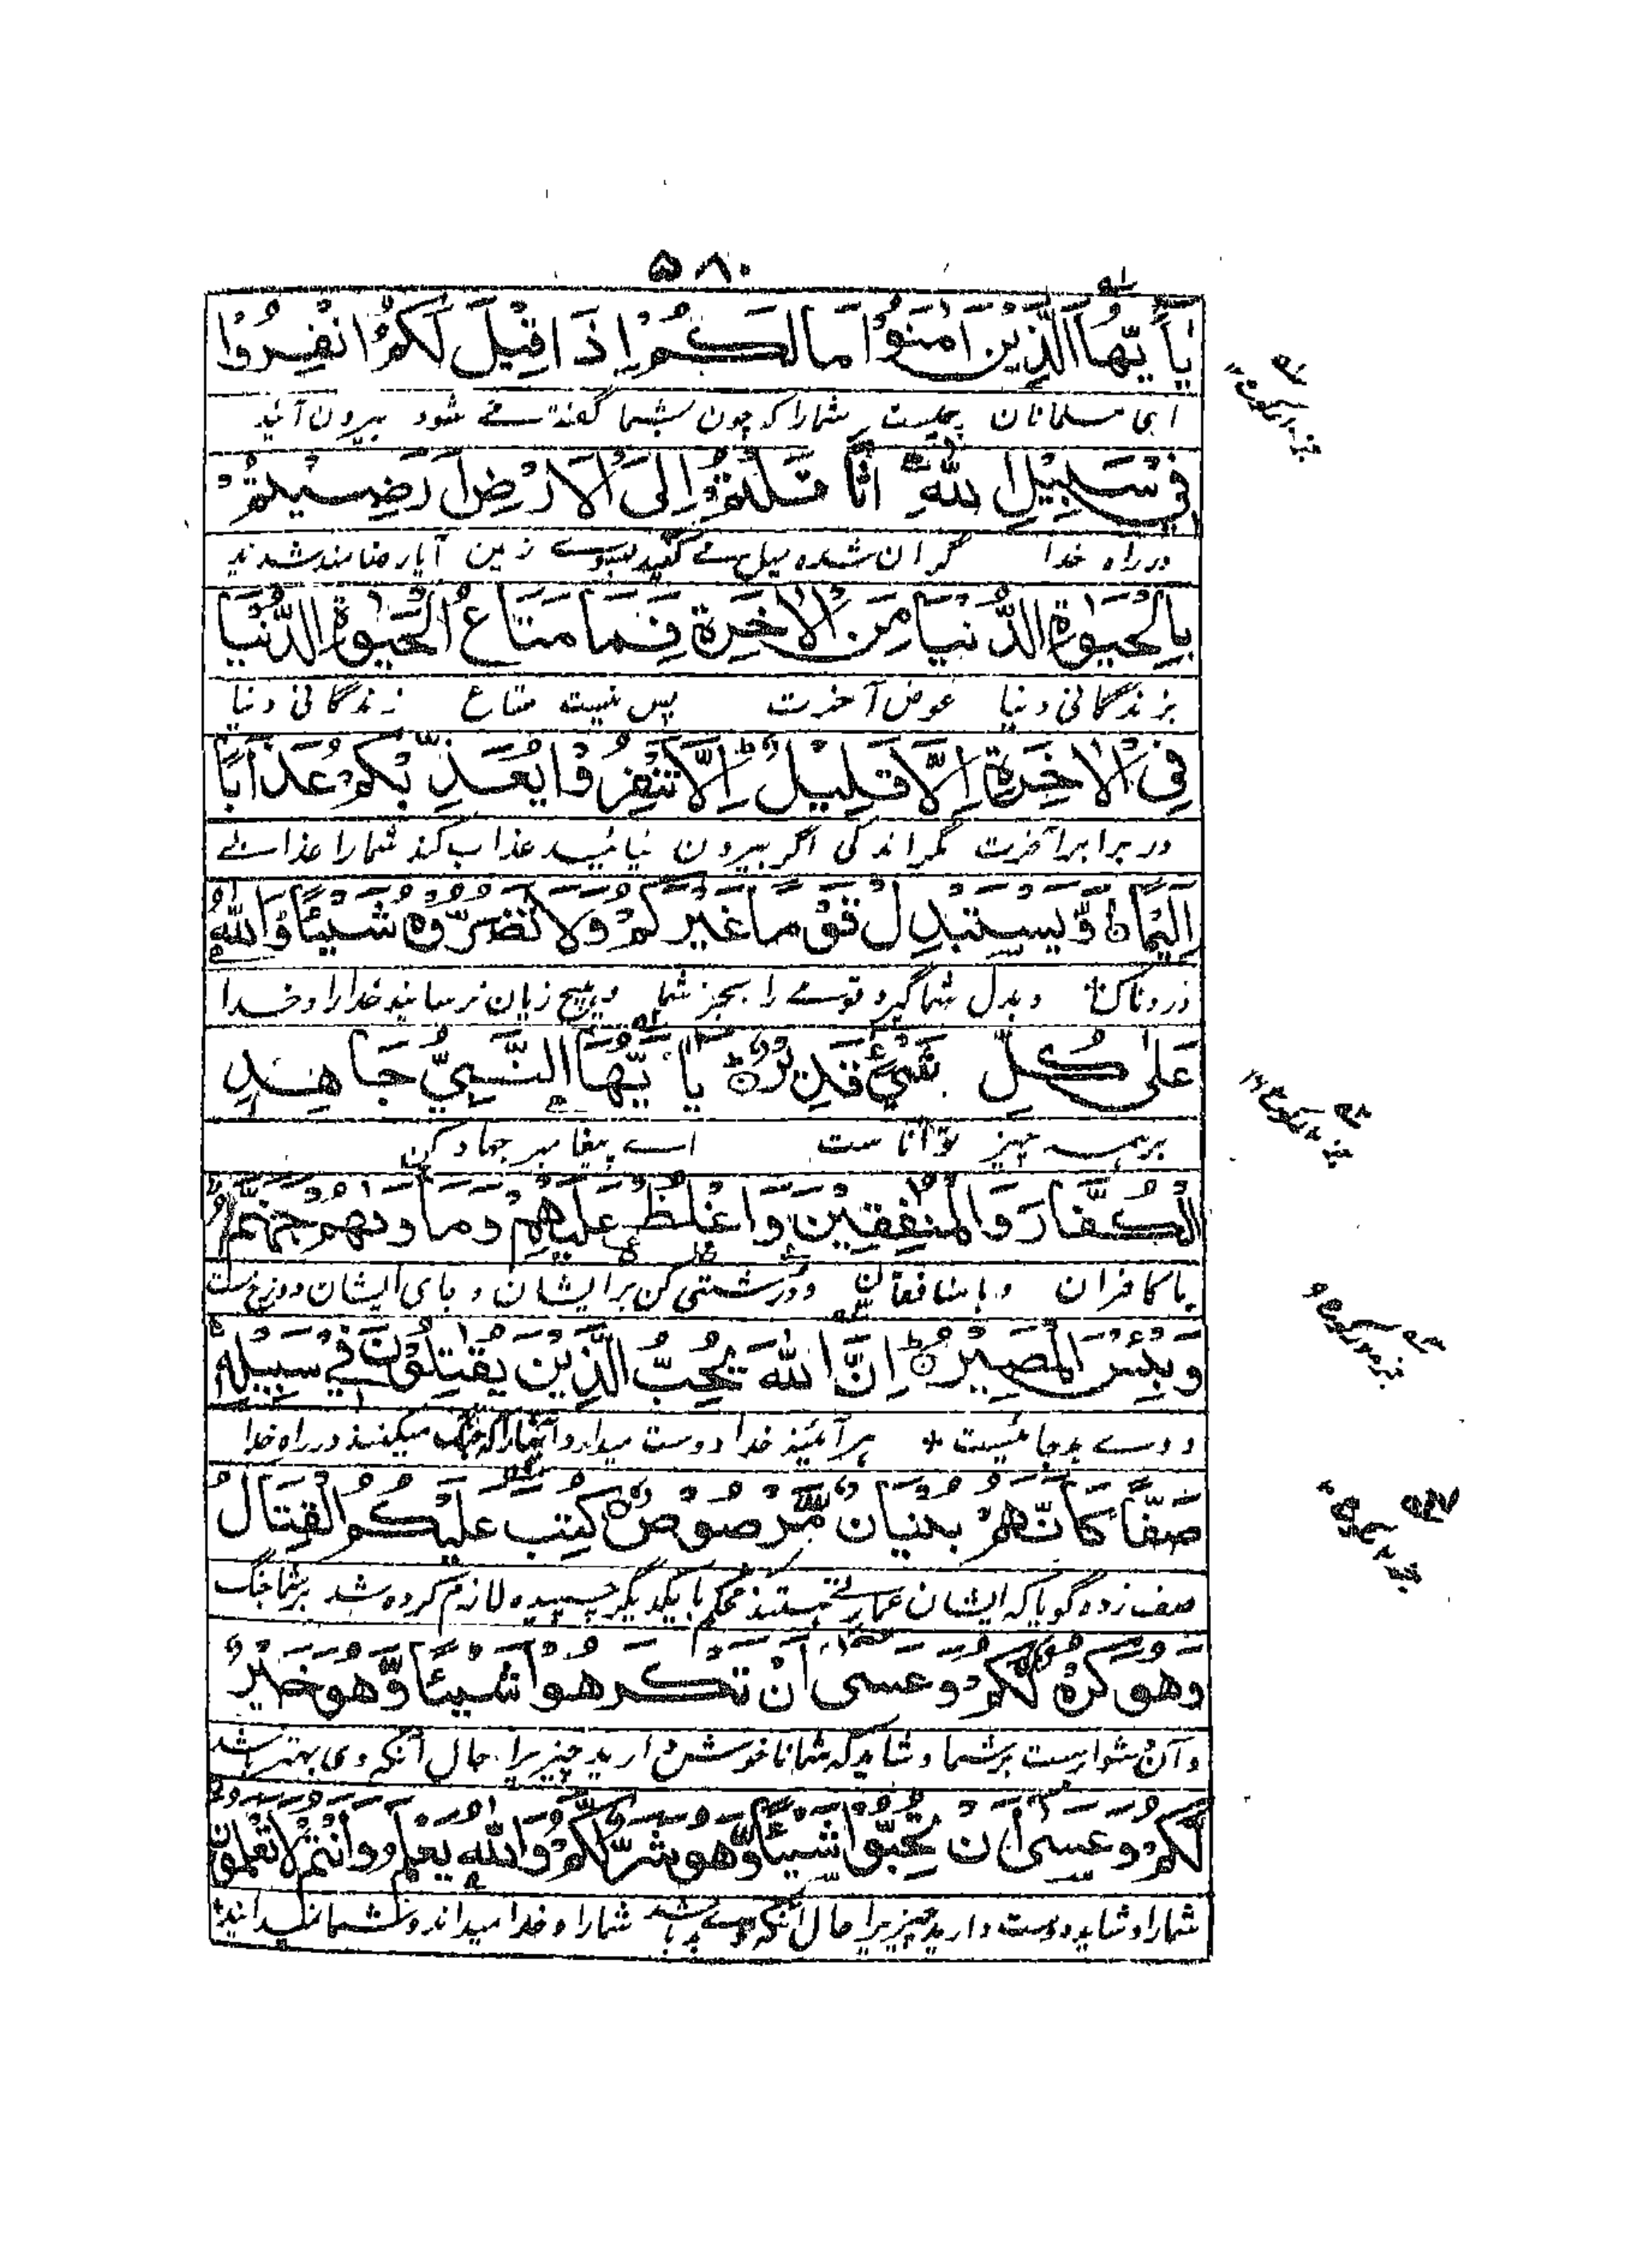 ۵۸۰
يٰٓاَيُّهَا الَّذِيْنَ اٰمَنُوْا مَا لَكُمْ اِذَا قِيْلَ لَكُمُ انْفِرُوْا
ای مسلمانان چیست شمارا که چون بشما گفته مے شود بیرون آئید
فِيْ سَبِيْلِ اللّٰهِ اثَّاقَلْتُمْ اِلَى الْاَرْضِ اَرَضِيْتُمْ
در راه خدا گران شده میل مے کنید بسوے زمین آیا رضامند شدید
بِالْحَيٰوةِ الدُّنْيَا مِنَ الْاٰخِرَةِ فَمَا مَتَاعُ الْحَيٰوةِ الدُّنْيَا
بزندگانی دنیا عوض آخرت پس نیست متاع زندگانی دنیا
فِى الْاٰخِرَةِ اِلَّا قَلِيْلٌ اِلَّا تَنْفِرُوْا يُعَذِّبْكُمْ عَذَابًا
در برابر آخرت مگر اندکی اگر بیرون نیائید عذاب کند شمارا عذابے
اَلِيْمًا وَّيَسْتَبْدِلْ قَوْمًا غَيْرَكُمْ وَلَا تَضُرُّوْهُ شَيْـًٔا وَاللّٰهُ
دردناک و بدل شما گیرد قومے را بجز شما و هیچ زیان نرسانید خدارا و خدا
عَلٰى كُلِّ شَيْءٍ قَدِيْرٌ يٰٓاَيُّهَا النَّبِيُّ جَاهِدِ
بر همه چیز توانا ست اے پیغامبر جهاد کن
الْكُفَّارَ وَالْمُنٰفِقِيْنَ وَاغْلُظْ عَلَيْهِمْ وَمَاْوٰىهُمْ جَهَنَّمُ
با کافران و با منافقان و درشتی کن بر ایشان و جای ایشان دوزخ ست
وَبِئْسَ الْمَصِيْرُ اِنَّ اللّٰهَ يُحِبُّ الَّذِيْنَ يُقٰتِلُوْنَ فِيْ سَبِيْلِهٖ
و وے بد جائیست * هر آئینه خدا دوست میدارد آنانرا که جنگ میکنند در راه خدا
صَفًّا كَاَنَّهُمْ بُنْيَانٌ مَّرْصُوْصٌ كُتِبَ عَلَيْكُمُ الْقِتَالُ
صف زده گویا که ایشان عمارتے هستند محکم با یکدیگر چسپیده لازم کرده شد بر شما جنگ
وَهُوَ كُرْهٌ لَّكُمْ وَعَسٰٓى اَنْ تَكْرَهُوْا شَيْـًٔا وَّهُوَ خَيْرٌ
و آن دشوارست بر شما و شاید که شما ناخوش دارید چیزیرا حال آنکه وی بهتر باشد
لَّكُمْ وَعَسٰٓى اَنْ تُحِبُّوْا شَيْـًٔا وَّهُوَ شَرٌّ لَّكُمْ وَاللّٰهُ يَعْلَمُ وَاَنْتُمْ لَا تَعْلَمُوْنَ
شمارا و شاید دوست دارید چیزیرا حال آنکه وے بد باشد شمارا و خدا میداند و شما نمیدانید